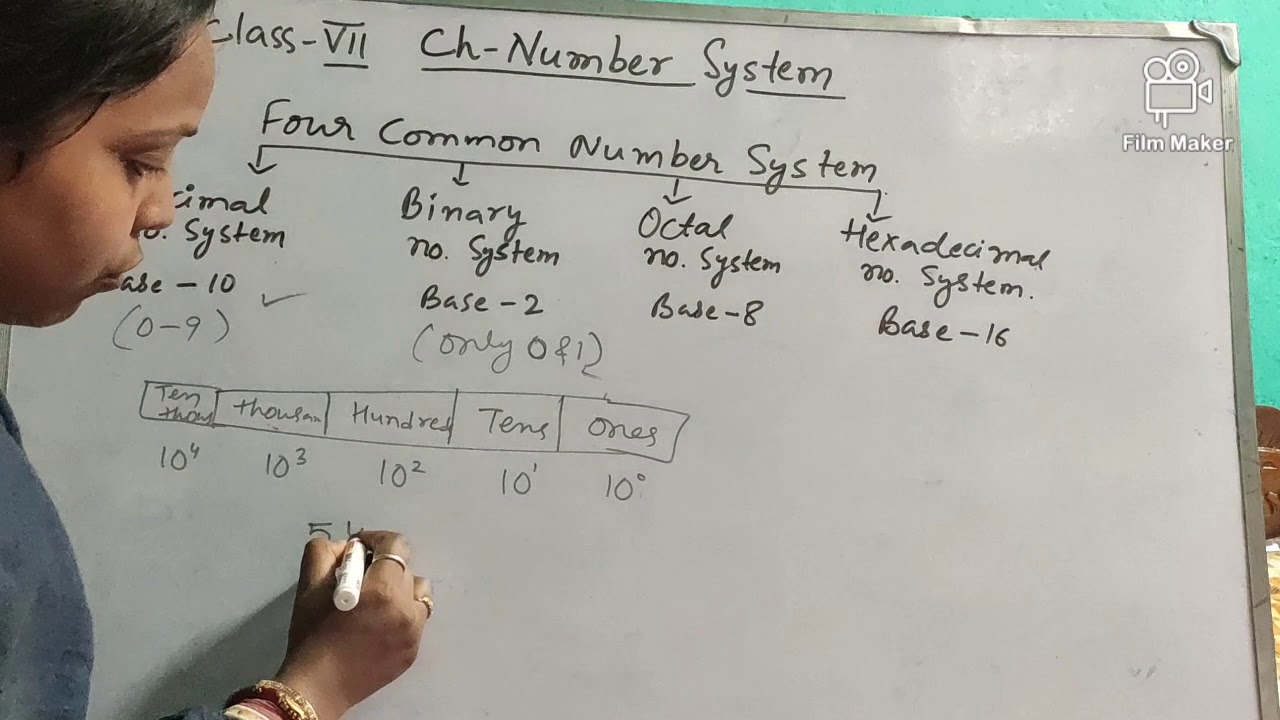 Class-VII Ch-Number System
Film Maker
Four Common Number System
cimal
no. System
ase - 10
(0-9) ✓
Binary
no. System
Base - 2
(only 0 & 1)
Octal
no. System
Base - 8
Hexadecimal
no. System.
Base - 16
Ten thou thousan Hundred Tens Ones
10⁴ 10³ 10² 10¹ 10⁰
5